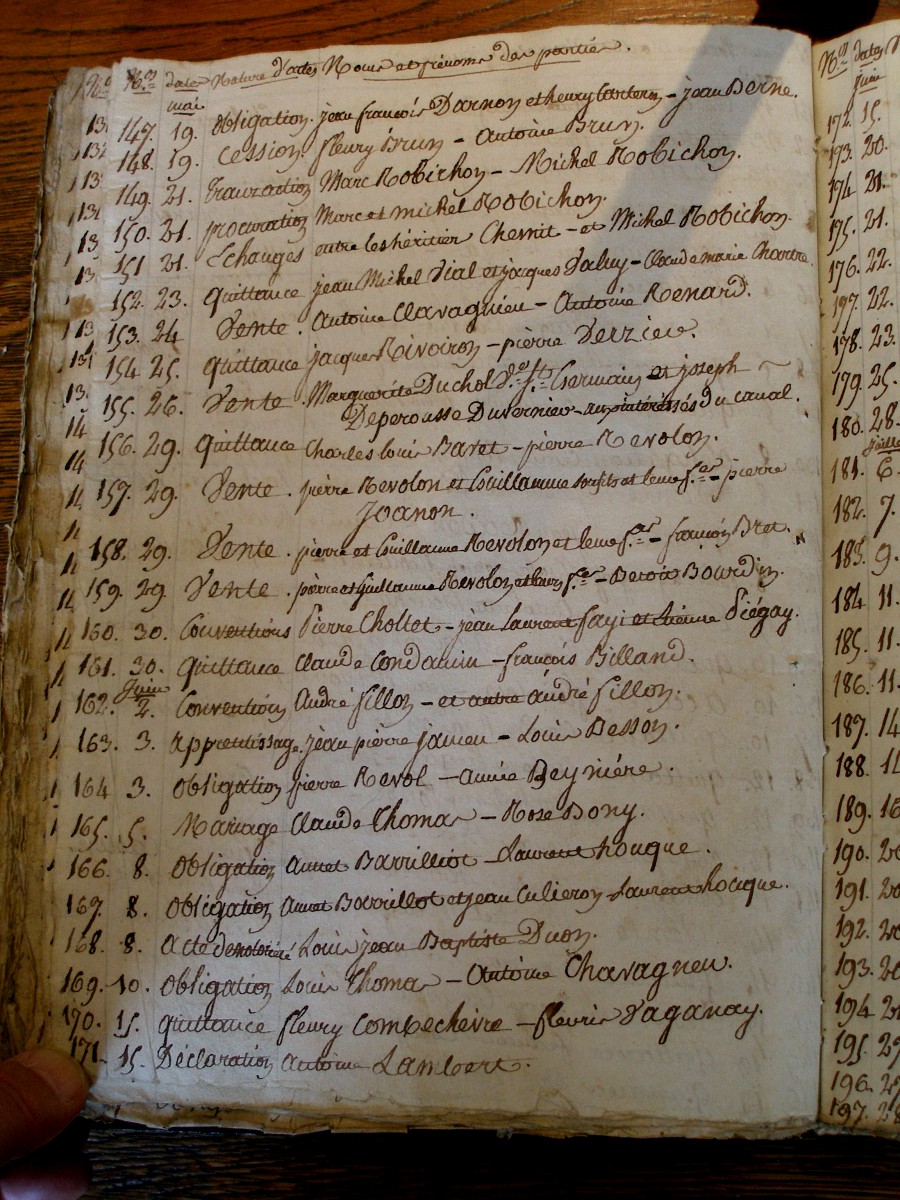 Nos. dates Nature d'actes Noms et prénoms des parties.
mai
147. 19. Obligation. jean françois Darnon et henry Carteron - jean Berne.
148. 19. Cession. fleury Brun - Antoine Brun.
149. 21. Transaction Marc Robichon - Michel Robichon.
150. 21. procuration Marc et michel Robichon.
151 21. Echanges entre les héritiers Chernit - et Michel Robichon.
152. 23. quittance jean Michel Vial et jacques - Claude marie Chartre.
153. 24 Vente. Antoine Clavagnieu - Antoine Renard.
154 25. quittance jacques Rivoiron - pierre Verzieu.
155. 26. Vente. Marguerite Duchol St. Germain et joseph
Deperousse Duvernier - aux intéressés du canal.
156. 29. quittance Charles louis Baret - pierre Revolon.
157. 29. Vente. pierre Revolon et Guillaume et leurs f.es - pierre
Joanon.
158. 29. Vente. pierre et Guillaume Revolon et leurs f.es - françois Bret.
159. 29 Vente. pierre et Guillaume Revolon et leurs f.es - Benoit Bourdin.
160. 30. Conventions Pierre Choltet - jean laurent fayi et étienne Piégay.
161. 30. quittance Claude Condamin - françois Billand.
Juin
162. 2. Conventions André fillon - et autre andré fillon.
163. 3. apprentissage. jean pierre jameu - Louis Besson.
164 3. Obligation pierre Revol - Beyniére.
165. 5. Mariage Claude Thomas - Rose Bony.
166. 8. Obligation annet Barrilliot - Laurent houque.
167. 8. Obligation annet Borrillot et jean Culieron - Laurent houque.
168. 8. acte de notoriété Louis jean Baptiste Duon.
169. 10. Obligation Louis Thomas - Antoine Chavagneu.
170. 15. quittance fleury Combechevre - fleurie Vaganay.
171. 15. Déclaration antoine Lambert.
Nos. dates
juin
172. 15.
173. 20.
174. 21.
175. 21.
176. 22.
197. 22.
178. 23.
179. 25.
180. 28.
juillet
181. 6.
182. 7.
183. 9.
184 11.
185. 11.
186. 11.
187. 14
188. 14
189. 16
190. 20
191. 20
192. 20
193. 20
194 21
195. 27
196. 27
197. 28